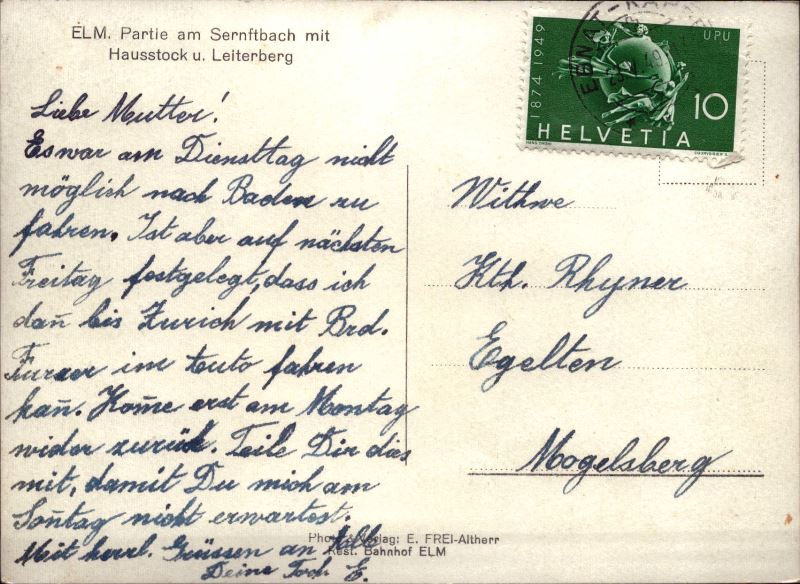 ELM. Partie am Sernftbach mit
Hausstock u. Leiterberg
Liebe Mutter!
Es war am Diensttag nicht
möglich nach Baden zu
fahren. Ist aber auf nächsten
Freitag festgelegt, dass ich
dan̄ bis Zurich mit Brd.
im Auto fahren
kan̄. Kom̄e erst am Montag
wider zurük. Teile Dir dies
mit, damit Du mich am
Son̄tag nicht erwartest.
Mit herzl. Grüssen an Alle
Deine Toch. E.
EBNAT-KAPPEL
49
1874 1949
UPU
10
HELVETIA
Withwe
Kth. Rhyner
Egelten
Mogelsberg
Photo & Verlag: E. FREI-Altherr
Rest. Bahnhof ELM